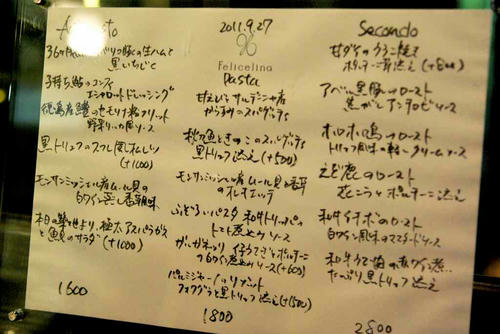 Antipasto
36ヶ月
の生ハムと
黒いちじく
子持ち鮎のコンフィ
エシャロットドレッシング
徳島産鱧のセモリナ粉フリット
野菜
ソース
黒トリュフのスフレ風オムレツ
(+1000)
モンサンミッシェル産ムール貝の
白ワイン蒸し香草風味
本日の築地より、極太アスパラガス
と魚貝のサラダ (+1000)
1600
2011.9.27
Felicelina
Pasta
甘えびとサルデーニャ産
からすみのスパゲティ
秋刀魚ときのこのスパゲティ
黒トリュフ添え (+500)
モンサンミッシェル産ムール貝と香草
のオレキエッテ
ぶどういろパスタ 和牛トリッパの
トマト煮込みソース
仔うさぎとポルチーニ
の白ワイン煮込みソース (+600)
パルミジャーノのリゾット
フォアグラと黒トリュフ添え (+1500)
1800
Secondo
甘ダイのうろこ焼き
ポルチーニ茸添え (+800)
アベル黒豚のロースト
焦がしアンチョビソース
ホロホロ鳥のロースト
トリュフ風味の軽いクリームソース
えぞ鹿のロースト
ポルチーニ添え
和牛イチボのロースト
白ワイン風味のマスタードソース
和牛
の赤ワイン煮
たっぷり黒トリュフ添え
2800